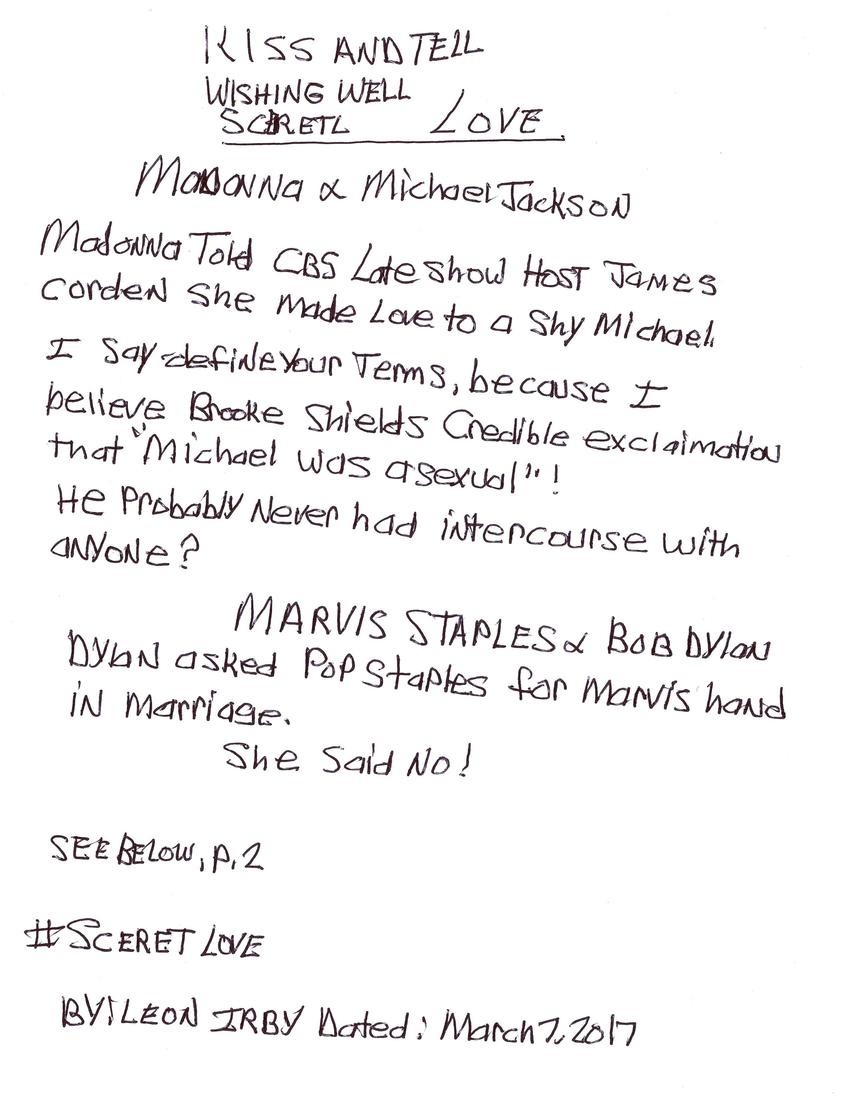 KISS AND TELL
WISHING WELL
SCRETL LOVE.
Madonna & Michael Jackson
Madonna Told CBS Late show Host James
Corden She made Love to a Shy Michael.
I Say define Your Terms, because I
believe Brooke Shields Credible exclaimation
that "Michael was asexual"!
He Probably Never had intercourse with
anyone?
MARVIS STAPLES & BOB DYLAN
Dylan asked Pop Staples for Marvis hand
in Marriage.
She Said No!
SEE BELOW, p. 2
#SCERET LOVE
BY: LEON IRBY Dated: March 7, 2017